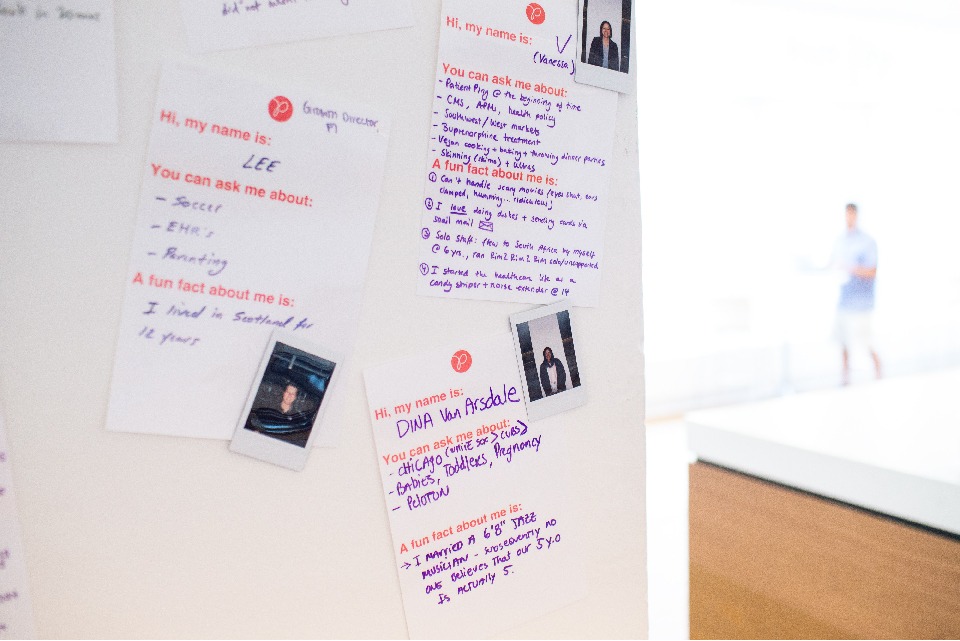 did not
Growth Director,
PI
Hi, my name is:
LEE
You can ask me about:
- Soccer
- EHR's
- Parenting
A fun fact about me is:
I lived in Scotland for
12 years
Hi, my name is:
V
(Vanessa)
You can ask me about:
- PatientPing @ the beginning of time
- CMS, APMs, health policy
- Southwest/West markets
- Buprenorphine treatment
- Vegan cooking + baking + throwing dinner parties
- Skinning (skimo) + ultras
A fun fact about me is:
① Can't handle scary movies (eyes shut, ears
clamped, humming... ridiculous)
② I love doing dishes + sending cards via
snail mail
③ Solo stuff: flew to South Africa by myself
@ 6 yrs., ran Rim 2 Rim 2 Rim solo/unsupported
④ I started the healthcare life as a
candy striper + nurse extender @ 14
Hi, my name is:
DINA Van Arsdale
You can ask me about:
- CHICAGO (WHITE SOX > CUBS)
- BABIES, Toddlers, Pregnancy
- PELOTON
A fun fact about me is:
→ I MARRIED A 6'8" JAZZ
MUSICIAN - subsequently no
ONE Believes That our 5 y.o
Is ACTUALLY 5.